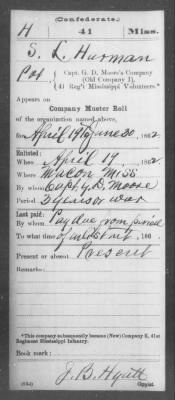 (Confederate.)
H 41 Miss.
S. L. Harman
Pvt, Capt. G. D. Moore's Company
(Old Company I),
41 Reg't Mississippi Volunteers.*
Appears on
Company Muster Roll
of the organization named above,
for April 19 to June 30, 1862
Enlisted:
When April 19, 1862.
Where Macon Miss
By whom Capt. G. D. Moore
Period 3 years or war
Last paid:
By whom Pay due from period
To what time of enlistment, 186 .
Present or absent Present
Remarks:
*This company subsequently became (New) Company K, 41st
Regiment Mississippi Infantry.
Book mark:
J. B. Hyatt
Copyist.